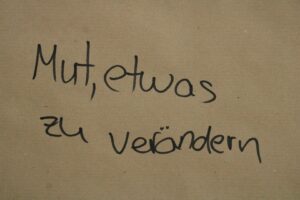 Mut, etwas
zu verändern